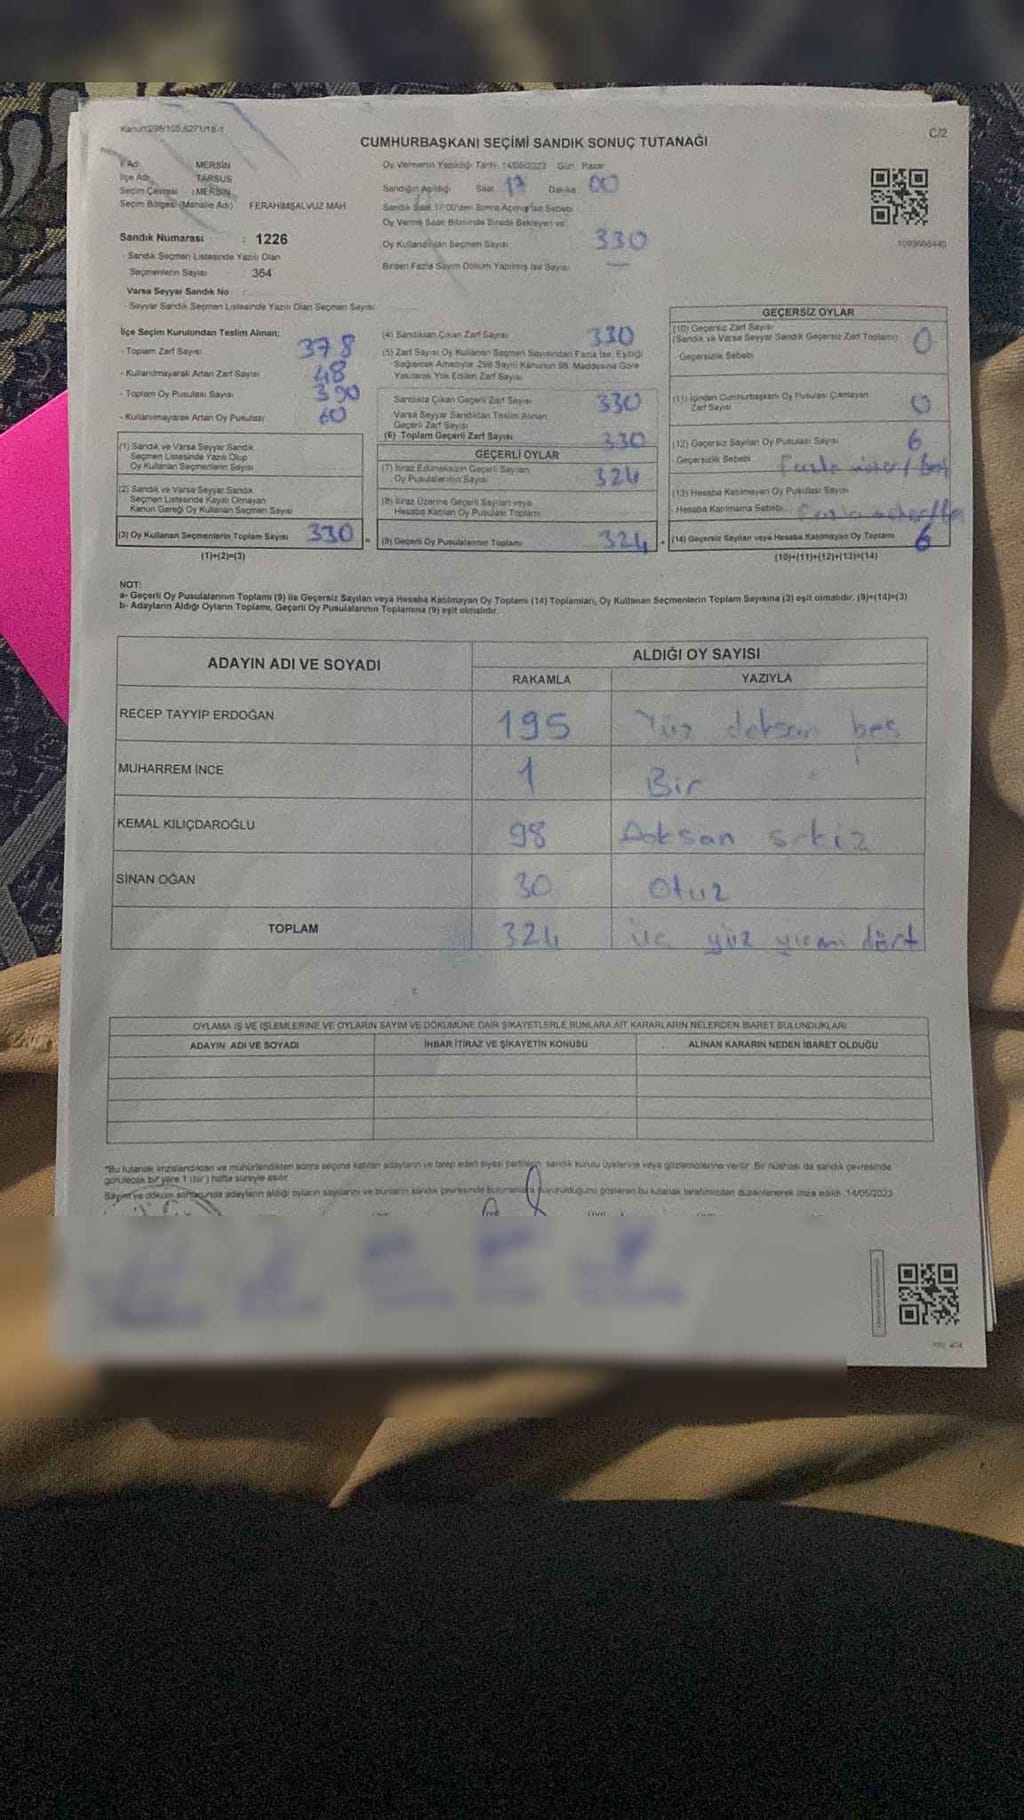 Kanun:298/105,6271/18-1
C/2
CUMHURBAŞKANI SEÇİMİ SANDIK SONUÇ TUTANAĞI
İl Adı MERSİN
İlçe Adı TARSUS
Seçim Çevresi : MERSİN
Seçim Bölgesi (Mahalle Adı) FERAHİMŞALVUZ MAH
Sandık Numarası : 1226
- Sandık Seçmen Listesinde Yazılı Olan
Seçmenlerin Sayısı : 364
Varsa Seyyar Sandık No
- Seyyar Sandık Seçmen Listesinde Yazılı Olan Seçmen Sayısı:
Oy Vermenin Yapıldığı Tarih: 14/05/2023 Gün: Pazar
Sandığın Açıldığı Saat 17 Dakika 00
Sandık Saat 17:00'den Sonra Açılmış İse Sebebi
Oy Verme Saati Bitiminde Sırada Bekleyen vs
Oy Kullandırılan Seçmen Sayısı 330
Birden Fazla Sayım Döküm Yapılmış İse Sayısı
1093666440
İlçe Seçim Kurulundan Teslim Alınan;
- Toplam Zarf Sayısı 378
- Kullanılmayarak Artan Zarf Sayısı 48
- Toplam Oy Pusulası Sayısı 390
- Kullanılmayarak Artan Oy Pusulası 60
(1) Sandık ve Varsa Seyyar Sandık
Seçmen Listesinde Yazılı Olup
Oy Kullanan Seçmenlerin Sayısı
(2) Sandık ve Varsa Seyyar Sandık
Seçmen Listesinde Kayıtlı Olmayan
Kanun Gereği Oy Kullanan Seçmen Sayısı
(3) Oy Kullanan Seçmenlerin Toplam Sayısı 330 =
(1)+(2)=(3)
(4) Sandıktan Çıkan Zarf Sayısı 330
(5) Zarf Sayısı Oy Kullanan Seçmen Sayısından Fazla İse, Eşitliği
Sağlamak Amacıyla, 298 Sayılı Kanunun 98. Maddesine Göre
Yakılarak Yok Edilen Zarf Sayısı
Sandıkta Çıkan Geçerli Zarf Sayısı 330
Varsa Seyyar Sandıktan Teslim Alınan
Geçerli Zarf Sayısı
(6) Toplam Geçerli Zarf Sayısı 330
GEÇERLİ OYLAR
(7) İtiraz Edilmeksizin Geçerli Sayılan
Oy Pusulalarının Sayısı 324
(8) İtiraz Üzerine Geçerli Sayılan veya
Hesaba Katılan Oy Pusulası Toplamı
(9) Geçerli Oy Pusulalarının Toplamı 324 +
GEÇERSİZ OYLAR
(10) Geçersiz Zarf Sayısı
(Sandık ve Varsa Seyyar Sandık Geçersiz Zarf Toplamı) 0
- Geçersizlik Sebebi
(11) İçinden Cumhurbaşkanı Oy Pusulası Çıkmayan
Zarf Sayısı 0
(12) Geçersiz Sayılan Oy Pusulası Sayısı 6
- Geçersizlik Sebebi Fazla
(13) Hesaba Katılmayan Oy Pusulası Sayısı
- Hesaba Katılmama Sebebi
(14) Geçersiz Sayılan veya Hesaba Katılmayan Oy Toplamı 6
(10)+(11)+(12)+(13)=(14)
NOT:
a- Geçerli Oy Pusulalarının Toplamı (9) ile Geçersiz Sayılan veya Hesaba Katılmayan Oy Toplamı (14) Toplamları, Oy Kullanan Seçmenlerin Toplam Sayısına (3) eşit olmalıdır. (9)+(14)=(3)
b- Adayların Aldığı Oyların Toplamı, Geçerli Oy Pusulalarının Toplamına (9) eşit olmalıdır.
ADAYIN ADI VE SOYADI ALDIĞI OY SAYISI
RAKAMLA YAZIYLA
RECEP TAYYİP ERDOĞAN 195 Yüz doksan beş
MUHARREM İNCE 1 Bir
KEMAL KILIÇDAROĞLU 98 Doksan sekiz
SİNAN OĞAN 30 Otuz
TOPLAM 324 üç yüz yirmi dört
OYLAMA İŞ VE İŞLEMLERİNE VE OYLARIN SAYIM VE DÖKÜMÜNE DAİR ŞİKAYETLERLE BUNLARA AİT KARARLARIN NELERDEN İBARET BULUNDUKLARI
ADAYIN ADI VE SOYADI İHBAR İTİRAZ VE ŞİKAYETİN KONUSU ALINAN KARARIN NEDEN İBARET OLDUĞU
"Bu tutanak imzalandıktan ve mühürlendikten sonra seçime katılan adayların ve talep eden siyasi partilerin, sandık kurulu üyelerine veya gözlemcilerine verilir. Bir nüshası da sandık çevresinde
görülecek bir yere 1 (bir) hafta süreyle asılır.
Sayım ve döküm sonucunda adayların aldığı oyların sayılarını ve bunların sandık çevresinde bulunanlara duyurulduğunu gösteren bu tutanak tarafımızdan düzenlenerek imza edildi. 14/05/2023